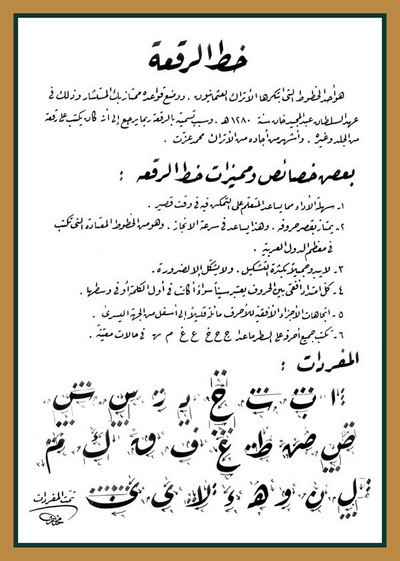 خط الرقعة
هو أحد الخطوط التى ابتكرها الأتراك العثمانيون . ووضع قواعده ممتاز بك المستشار وذلك في
عهد السلطان عبد المجيد خان سنة ١٢٨٠ هـ . وسبب تسميته بالرقعة ربما يرجع إلى أنه كان يكتب على رقعة
من الجلد وغيره . وأشهر من أجاده من الأتراك محمد عزت .
بعض خصائص ومميزات خط الرقعه :
١ـ سهلة الأداء مما يساعد المتعلم على التمكن فيه في وقت قصير .
٢ـ يمتاز بقصر حروفه . وهذا يساعد في سرعة الانجاز . وهو من الخطوط المعتادة التى تكتب
في معظم الدول العربية .
٣ـ لا يبدو جميلاً بكثرة التشكيل . ولا يشكل إلا لضرورة .
٤ـ كل امتداد أفقى بين الحروف يعتبر سيناً سواء أكانت في أول الكلمة أو في وسطها .
٥ـ اتجاهات الأجزاء الأفقية للأحرف مائلة قليلاً إلى أسفل من الجهة اليسرى .
٦ـ تكتب جميع أحرفه على السطر ماعدا ج ح خ ع غ م هـ في حالات معينة .
المفردات :
ا ب ت خ د ر س ش
ض ص ط غ ف ق ك م
ل ن و هـ ء لا ى ئ
تمت المفردات